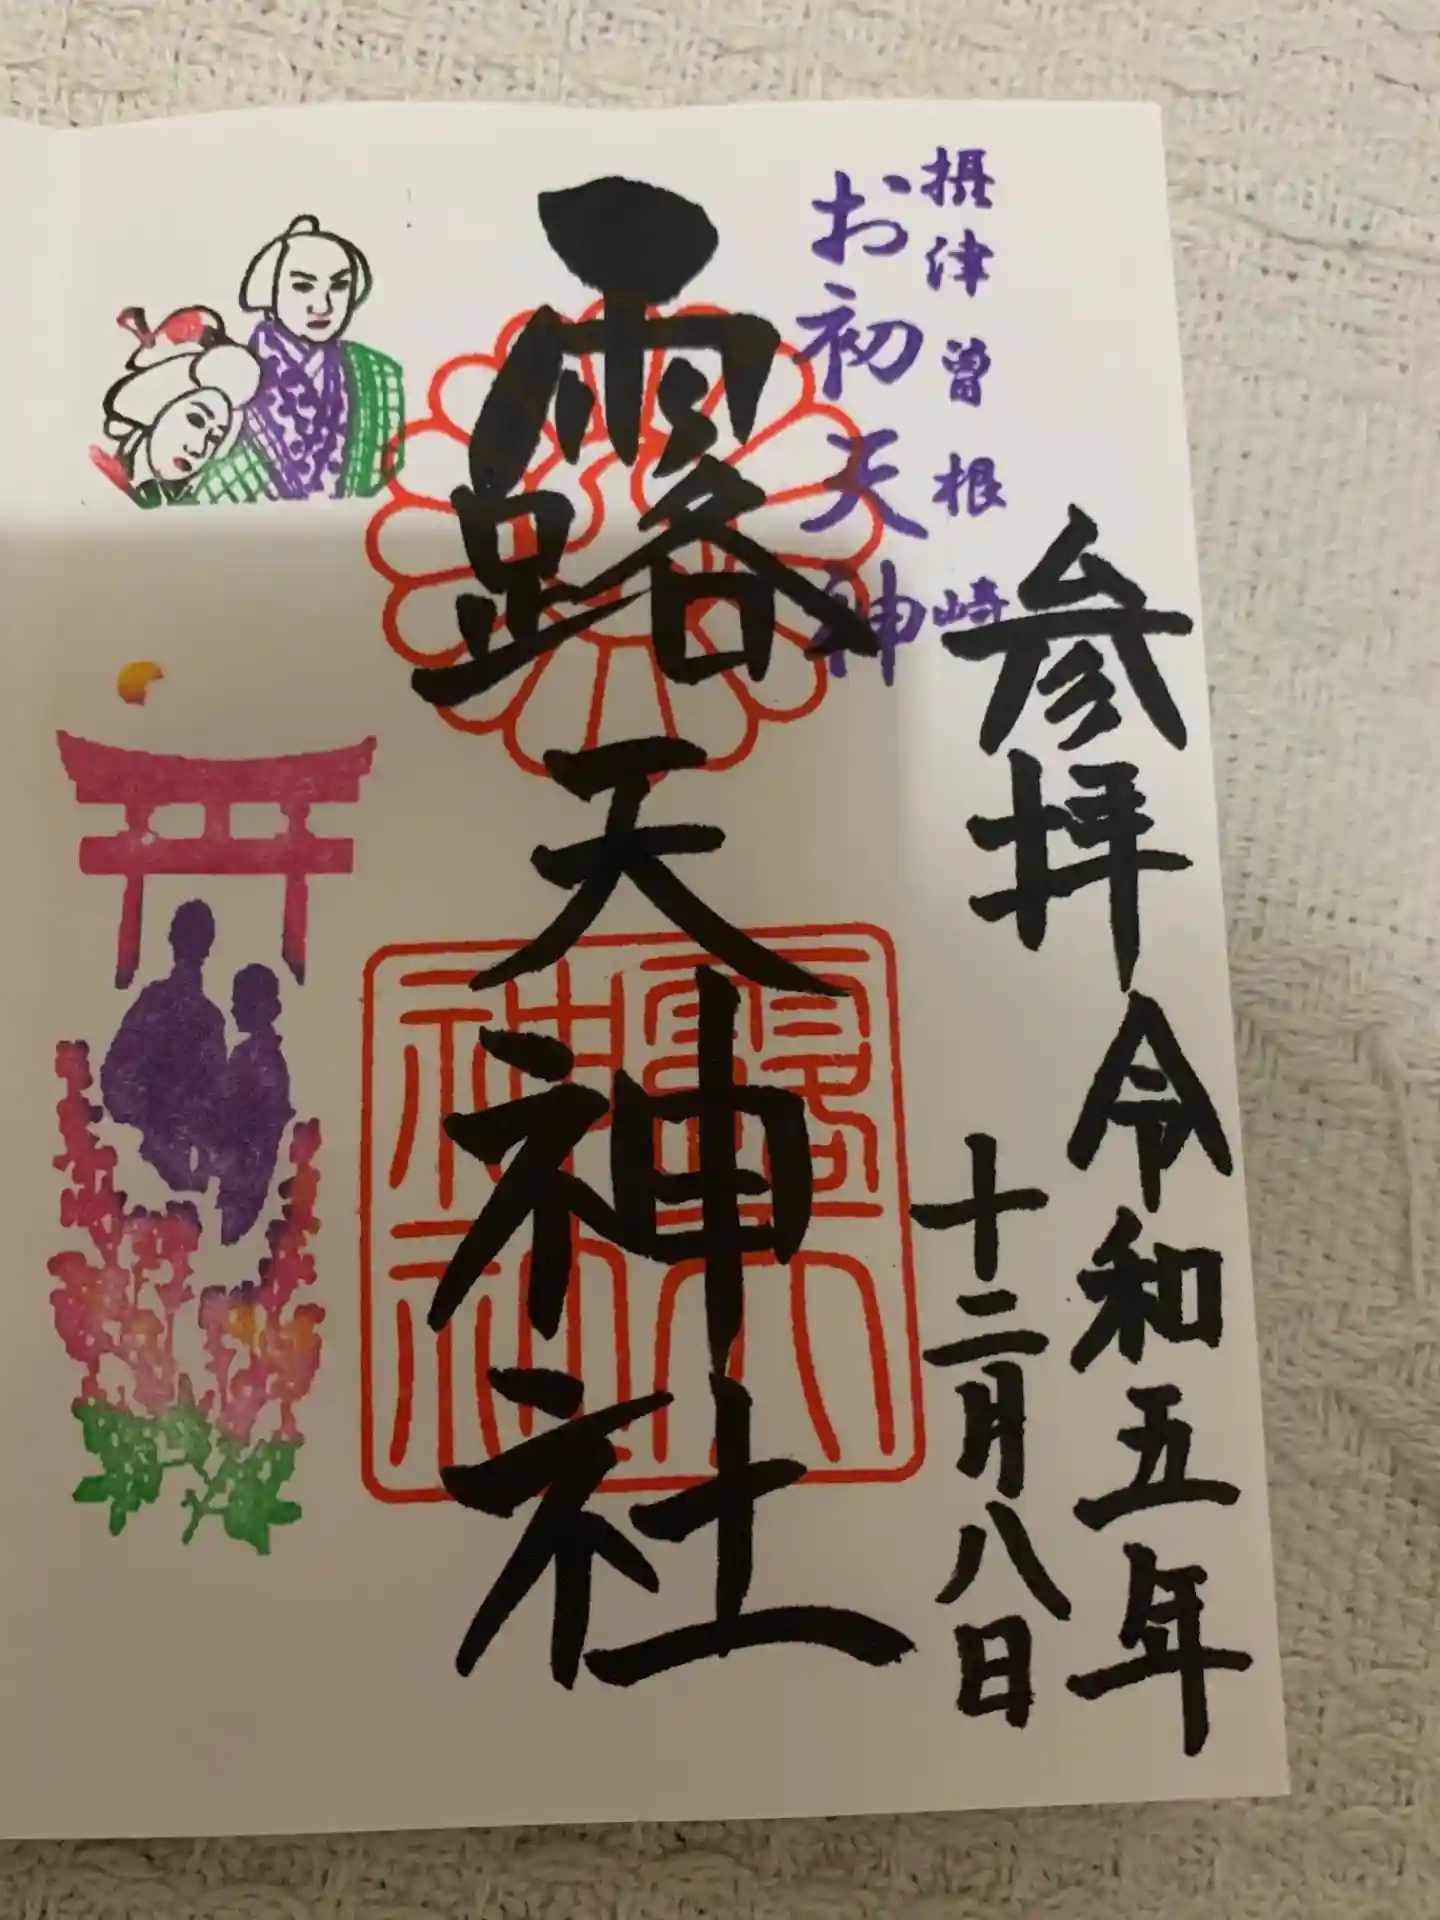 参拝 令和五年
十二月八日
摂津曽根崎
お初天神
露天神社
露天神社